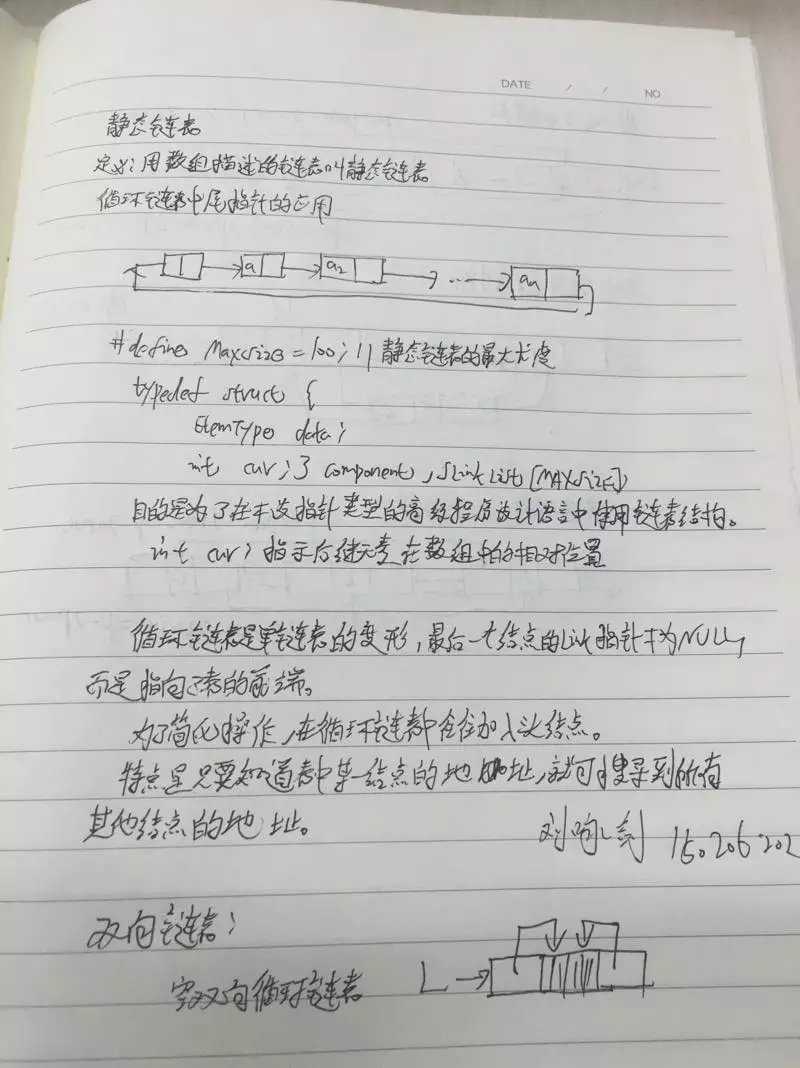 DATE / / NO
静态链表
定义：用数组描述的链表叫静态链表
循环链表中尾指针的应用
a1 a2 ... an
#define Maxsize = 100; // 静态链表的最大长度
typedef struct {
ElemType data;
int cur; } component, SLinkList [MAXSIZE]
目的是为了在不设指针类型的高级程序设计语言中使用链表结构。
int cur; 指示后继元素在数组中的相对位置
循环链表是单链表的变形，最后一个结点的Link指针不为NULL,
而是指向了表的前端。
为了简化操作，在循环链表中往往加入头结点。
特点是只要知道表中某一结点的地址，就可搜寻到所有
其他结点的地址。
15.206.202
双向链表：
空双向循环链表 L